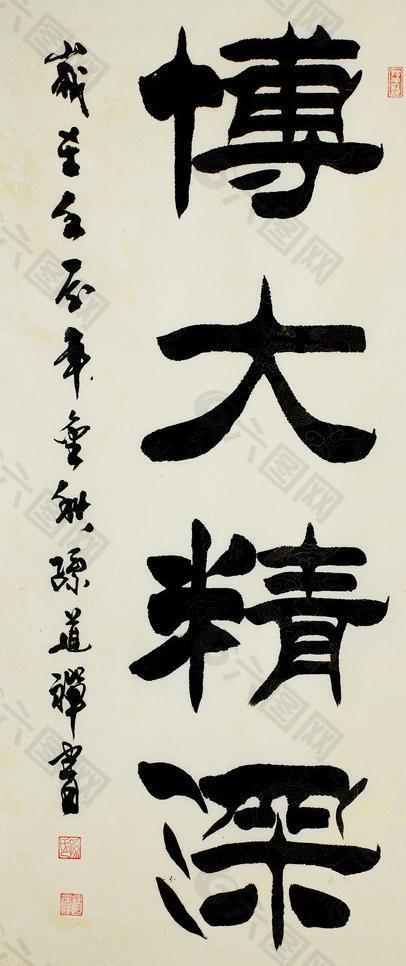 博大精深
岁在壬辰年金秋孙道禅书